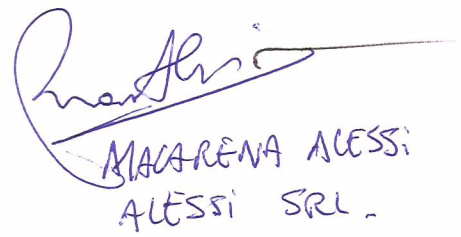 MACARENA ALESSi
ALESSi SRL.